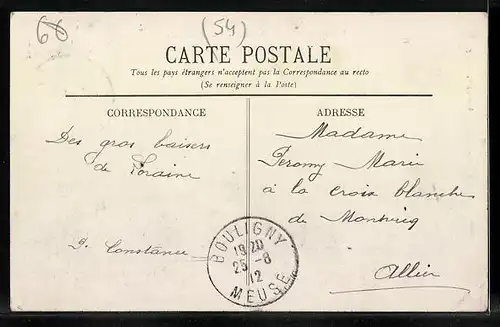 60
(54)
CARTE POSTALE
Tous les pays étrangers n'acceptent pas la Correspondance au recto
(Se renseigner à la Poste)
CORRESPONDANCE
Des gros baisers
de Loraine
Constance
ADRESSE
Madame
Peromy Marie
à la croix blanche
de Montvicq
Allier
BOULIGNY
19 20
25 -8
12
MEUSE